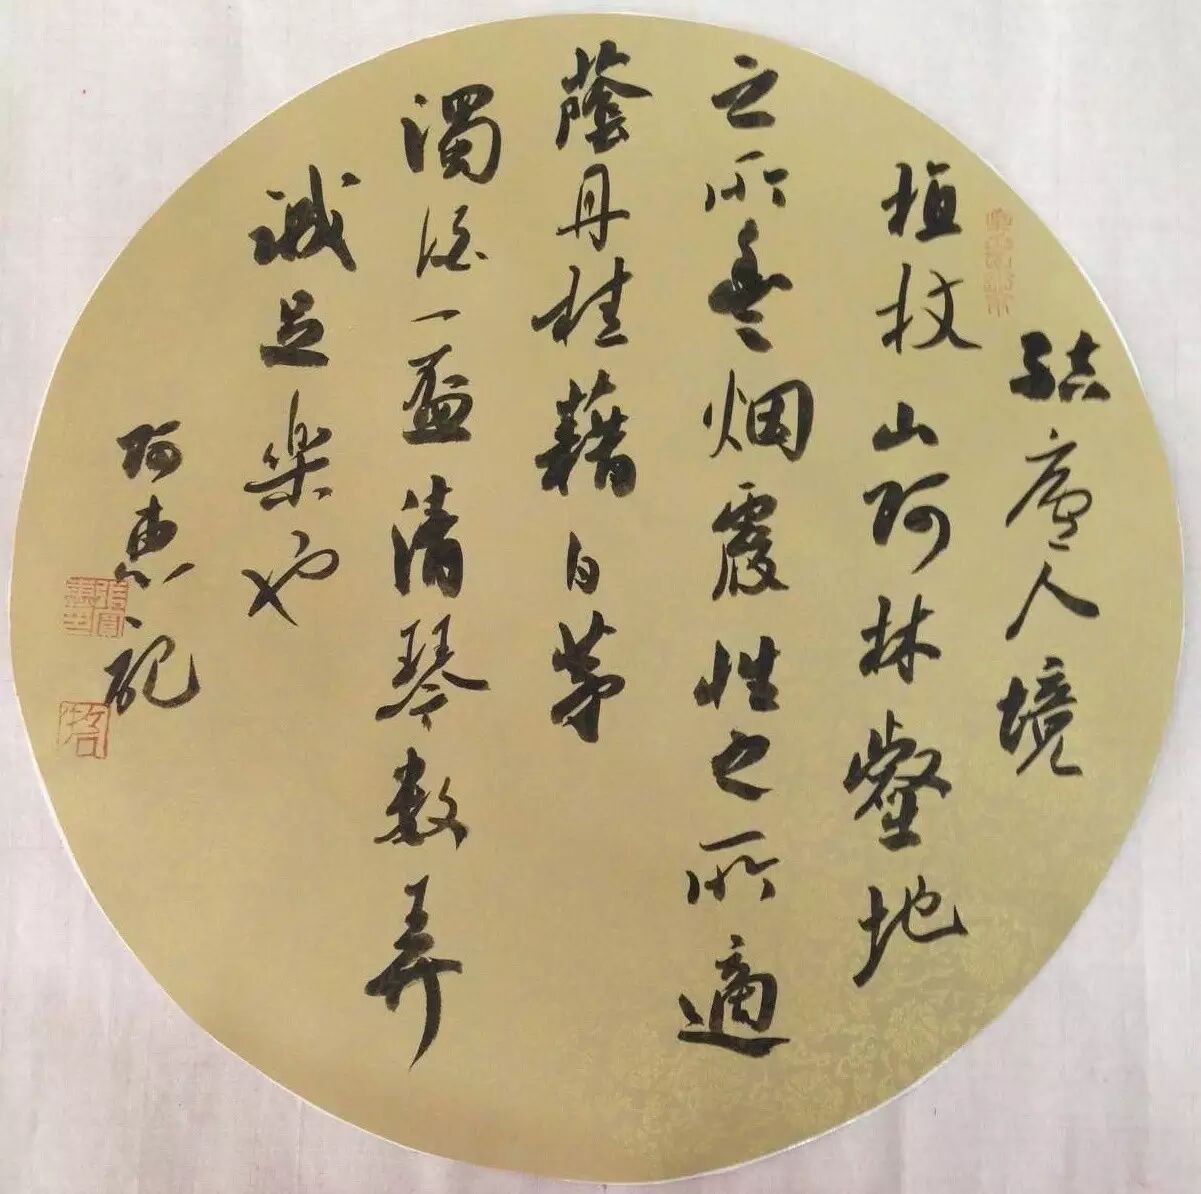 結廬人境
植杖山阿林壑地
之所豐烟霞性之所適
蔭丹桂藉白茅
濁酒一盃清琴数弄
誠足楽也
阿惠記